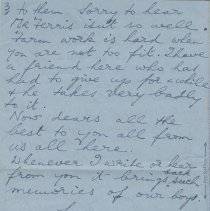 3 to them. Sorry to hear
Mr Ferris isn't so well.
Farm work is hard when
you are not too fit. I have
a friend here who has
had to give up for a while
& he takes very badly
to it.
Now dears all the
best to you all from
us all there.
Whenever I write or hear
from you it brings back such
memories of our boys.